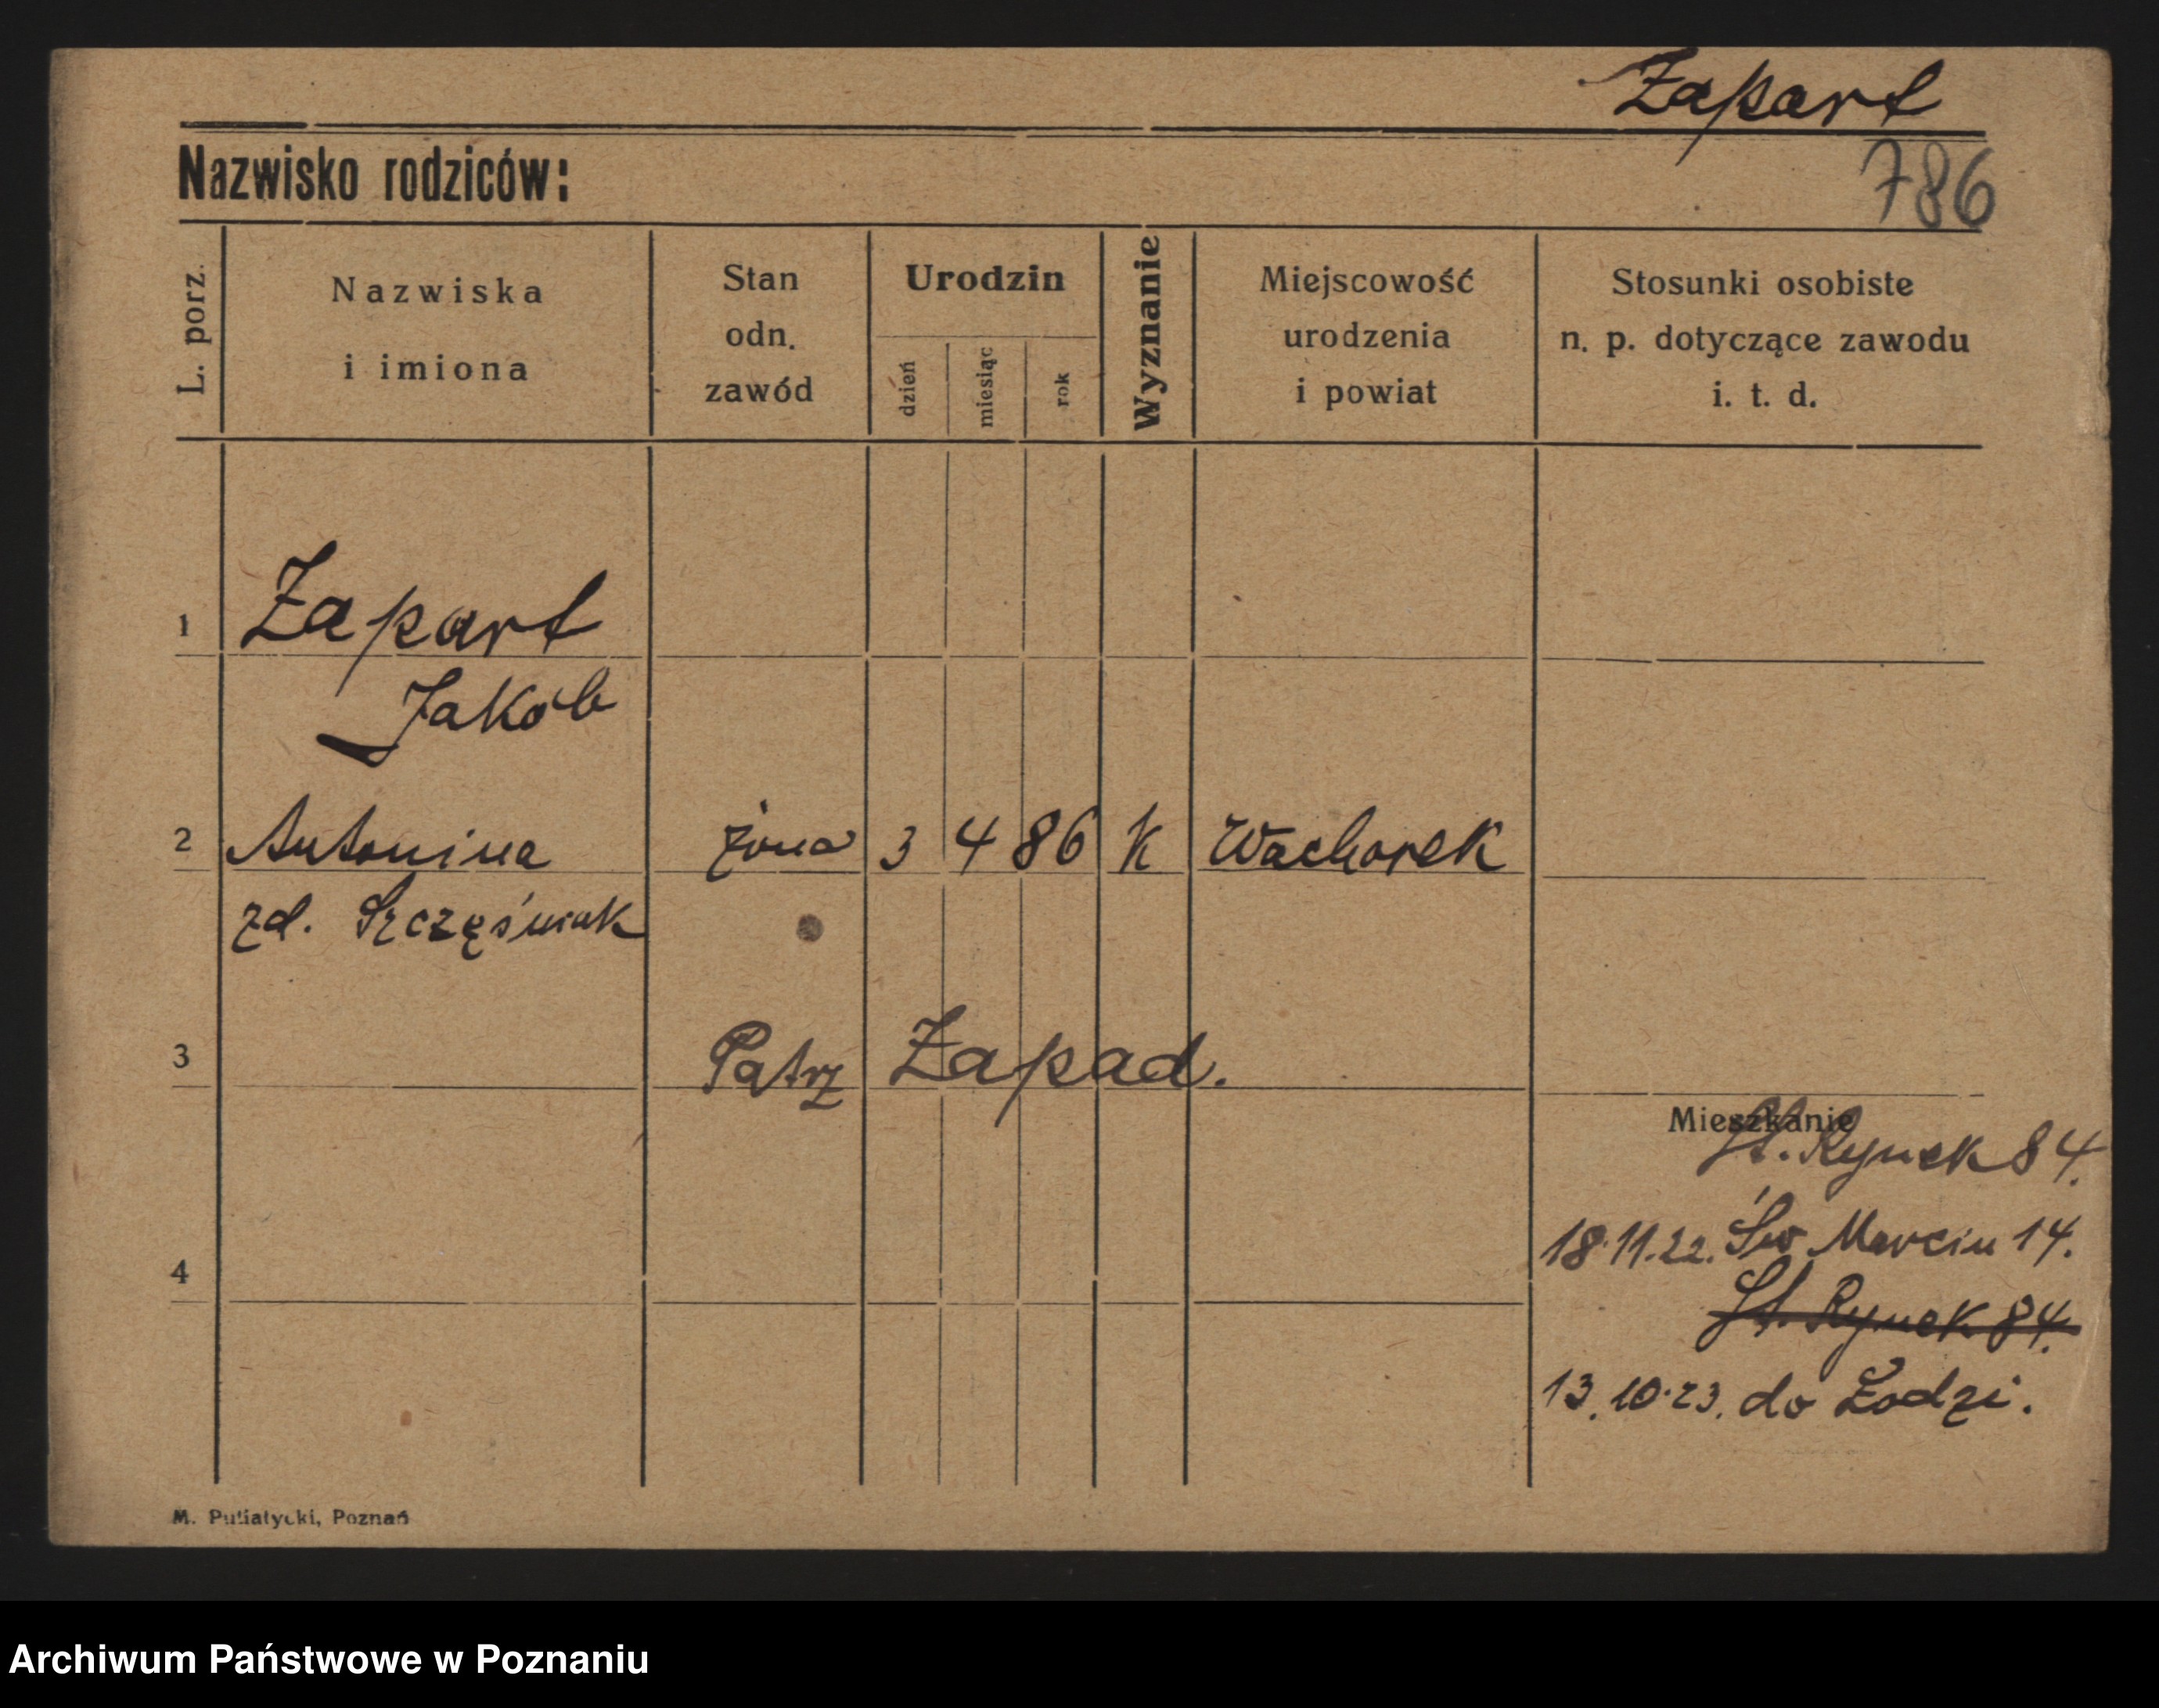 Zapart
786
Nazwisko rodziców:
L. porz.
Nazwiska
i imiona
Stan
odn.
zawód
Urodzin
dzień
miesiąc
rok
Wyznanie
Miejscowość
urodzenia
i powiat
Stosunki osobiste
n. p. dotyczące zawodu
i. t. d.
1 Zapart
Jakób
2 Antonina żona 3 4 86 K Wachorek
zd. Szczęśniak
3 Patrz Zapad.
Mieszkanie
St. Rynek 84.
18.11.22. Św Marcin 14.
4
St. Rynek 84.
13.10.23. do Łodzi.
M. Putiatycki, Poznań
Archiwum Państwowe w Poznaniu